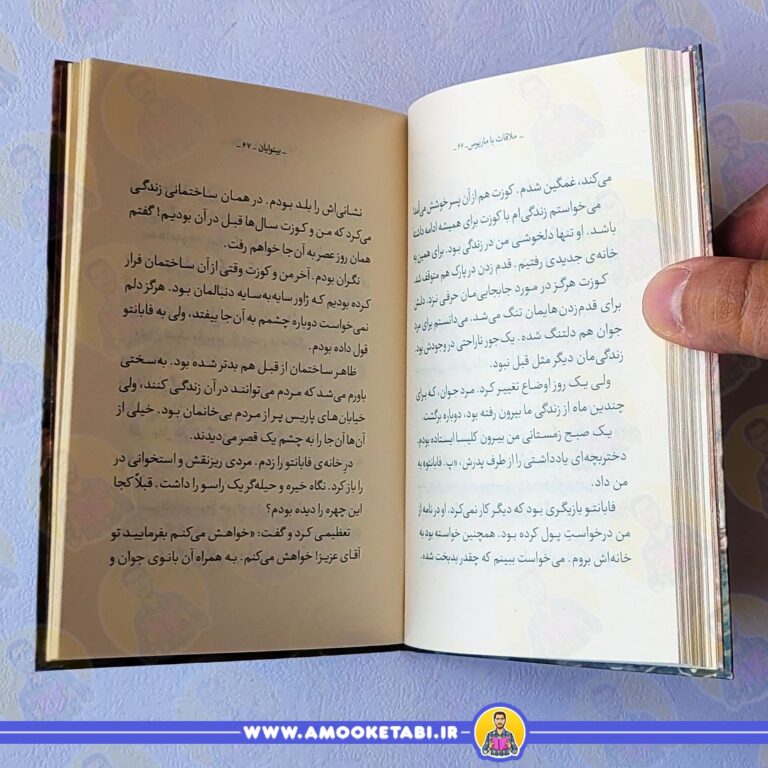 ـ ملاقات با ماریوس ـ ۶۶ ـ
می‌کند، غمگین شدم. کوزت هم از آن پسر خوشش می‌آمد!
می‌خواستم زندگی‌ام با کوزت برای همیشه ادامه داشته
باشد. او تنها دلخوشی من در زندگی بود. برای همین به
خانه‌ی جدیدی رفتیم. قدم زدن در پارک هم متوقف شد.
کوزت هرگز در مورد جابجایی‌مان حرفی نزد. دلش
برای قدم‌زدن‌هایمان تنگ می‌شد. می‌دانستم برای مرد
جوان هم دلتنگ شده. یک‌جور ناراحتی در وجودش بود.
زندگی‌مان دیگر مثل قبل نبود.
ولی یک روز اوضاع تغییر کرد. مرد جوان، که برای
چندین ماه از زندگی ما بیرون رفته بود، دوباره برگشت.
یک صبح زمستانی من بیرون کلیسا ایستاده بودم.
دختربچه‌ای یادداشتی را از طرف پدرش، «پ. فابانتو» به
من داد.
فابانتو بازیگری بود که دیگر کار نمی‌کرد. او در نامه از
من درخواستِ پول کرده بود. همچنین خواسته بود به
خانه‌اش بروم. می‌خواست ببینم که چقدر بدبخت شده.
ـ بینوایان ـ ۶۷ ـ
نشانی‌اش را بلد بودم. در همان ساختمانی زندگی
می‌کرد که من و کوزت سال‌ها قبل در آن بودیم! گفتم
همان روز عصر به آن‌جا خواهم رفت.
نگران بودم. آخر من و کوزت وقتی از آن ساختمان فرار
کرده بودیم که ژاور سایه‌به‌سایه دنبالمان بود. هرگز دلم
نمی‌خواست دوباره چشمم به آن‌جا بیفتد، ولی به فابانتو
قول داده بودم.
ظاهر ساختمان از قبل هم بدتر شده بود. به‌سختی
باورم می‌شد که مردم می‌توانند در آن زندگی کنند، ولی
خیابان‌های پاریس پر از مردم بی‌خانمان بود. خیلی از
آن‌ها آن‌جا را به چشم یک قصر می‌دیدند.
درِ خانه‌ی فابانتو را زدم. مردی ریزنقش و استخوانی در
را باز کرد. نگاه خیره و حیله‌گر یک راسو را داشت. قبلاً کجا
این چهره را دیده بودم؟
تعظیمی کرد و گفت: «خواهش می‌کنم بفرمایید تو
آقای عزیز! خواهش می‌کنم. به همراه آن بانوی جوان و
WWW.AMOOKETABI.IR